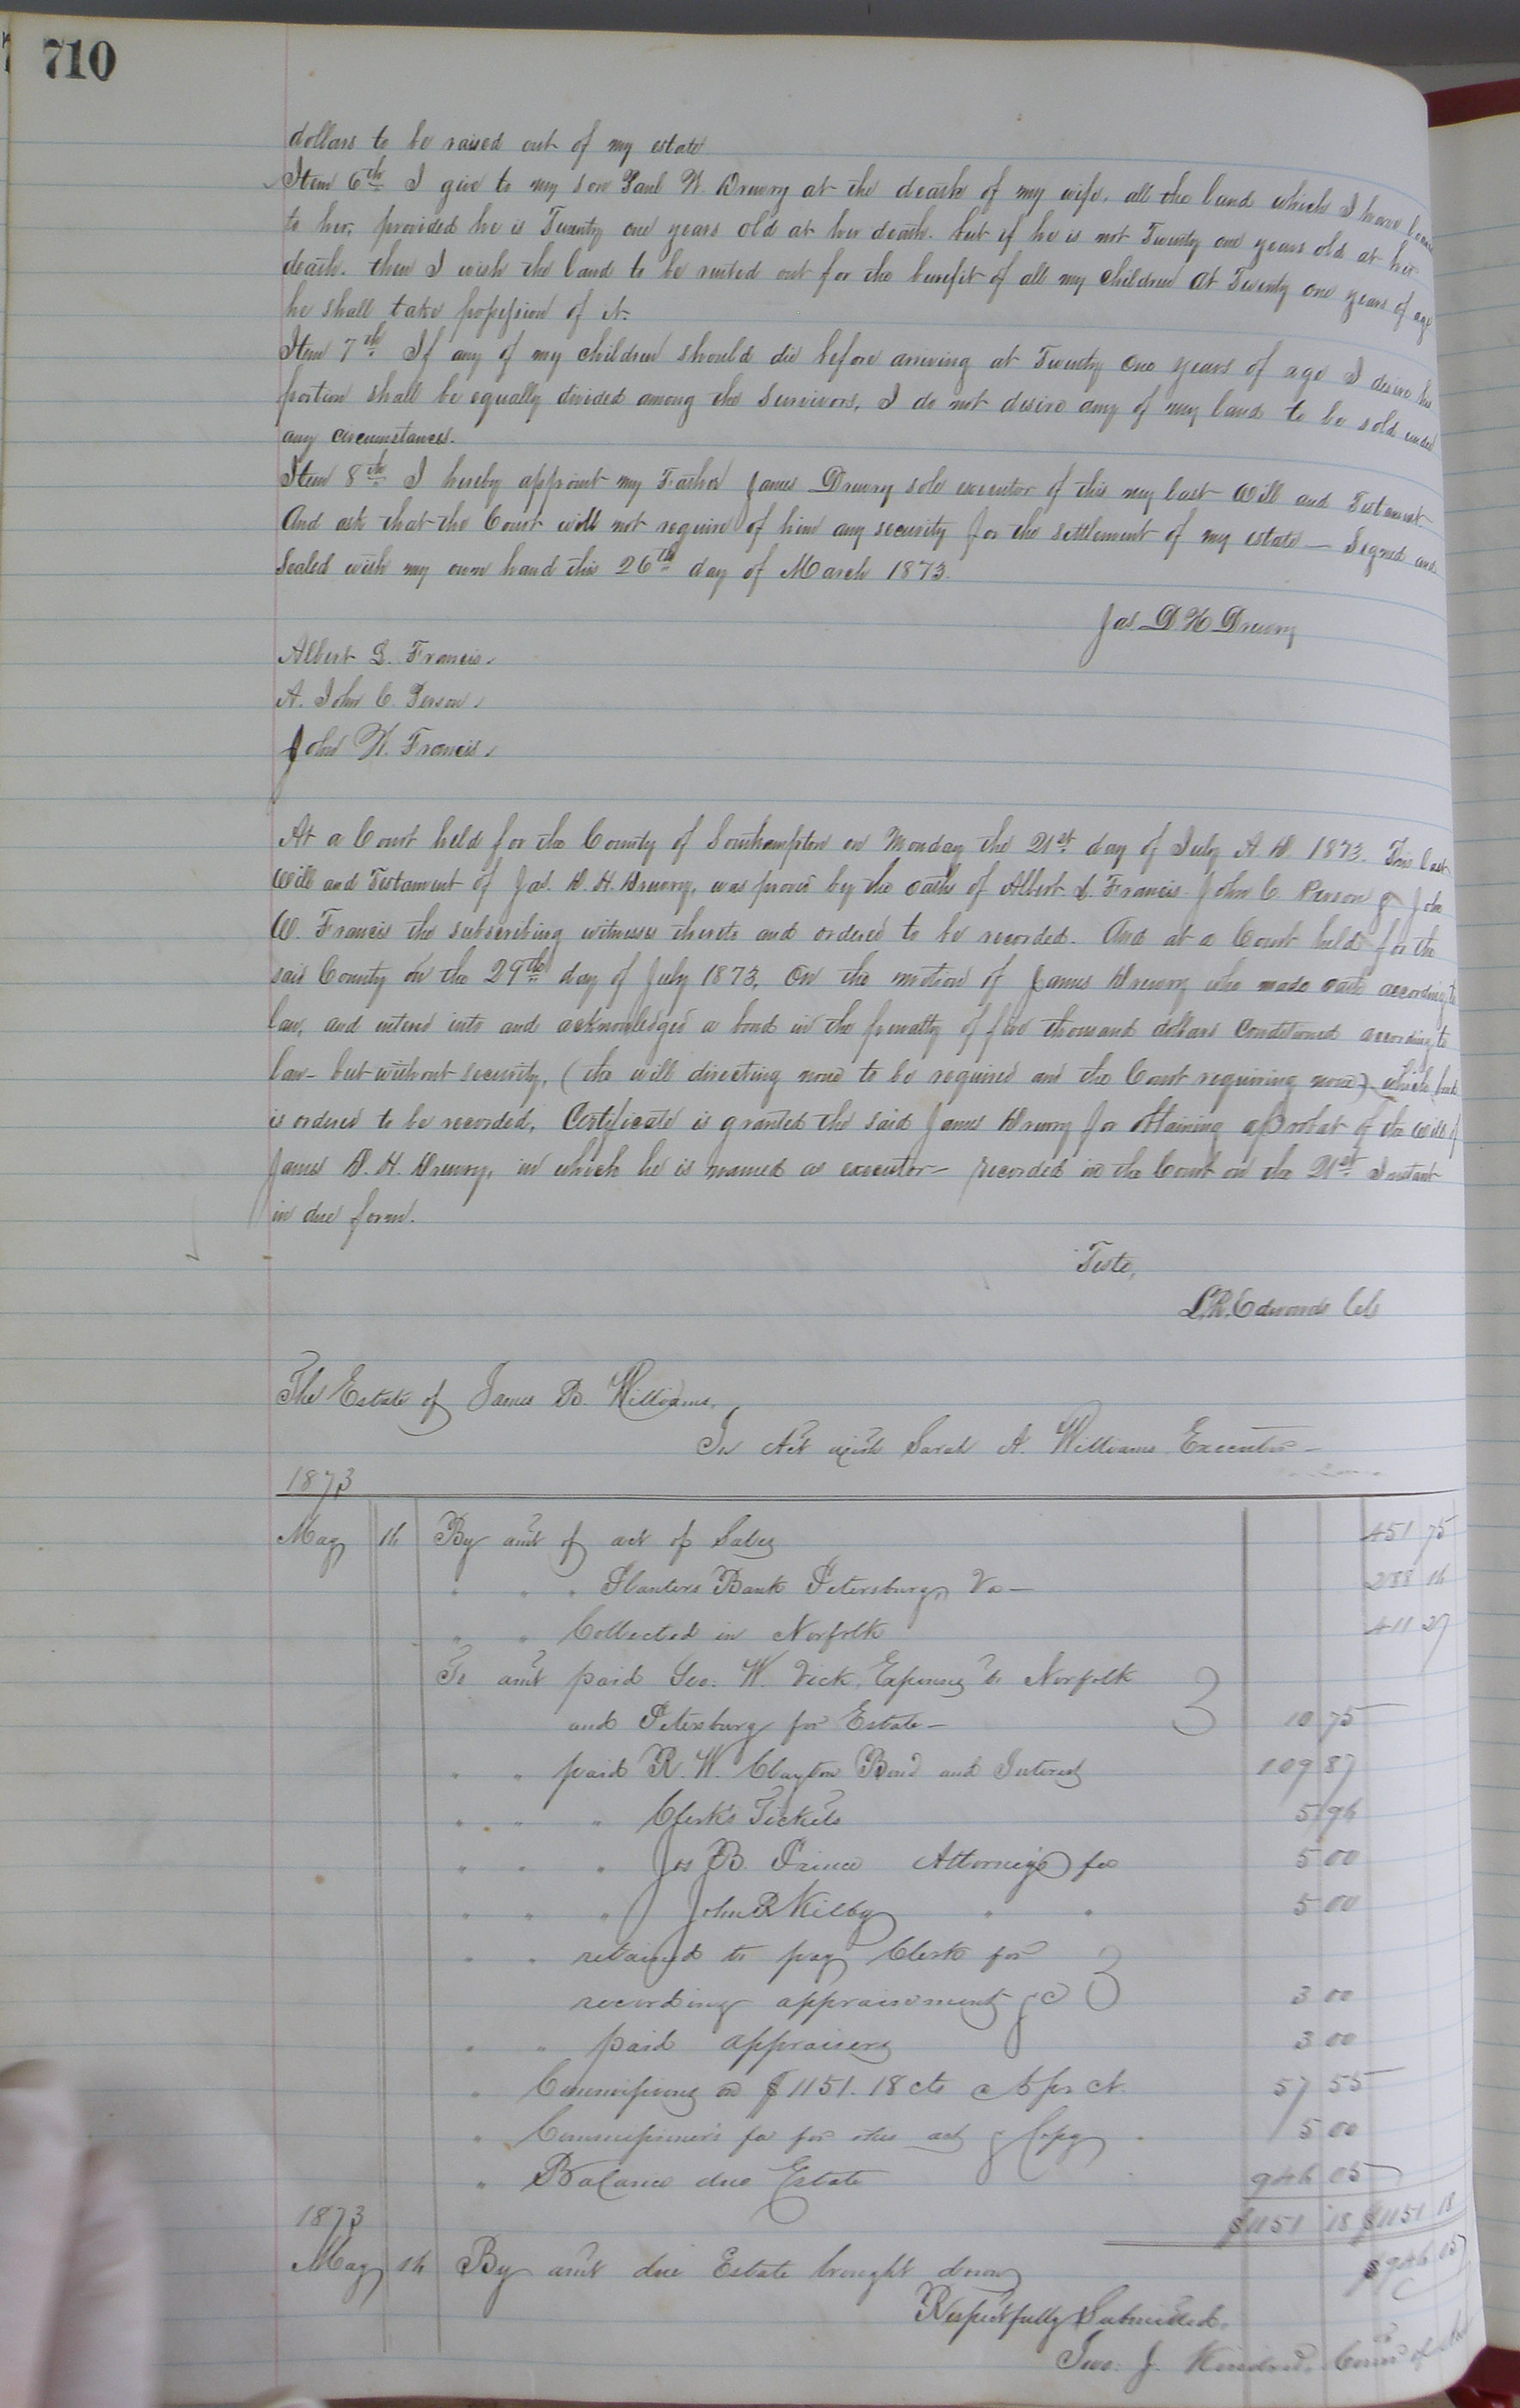 710
dollars to be raised out of my estate
Item 6th I give to my son Paul W. Drewry at the death of my wife, all the land which I have
to her, provided he is Twenty one years old at her death. but if he is not Twenty one years old at her
death. then I wish the land to be rented out for the benefit of all my children At Twenty one years of age
he shall take possession of it.
Item 7th If any of my children should die before arriving at Twenty one years of age I desire his
portion shall be equally divided among the survivors, I do not desire any of my land to be sold under
any circumstances.
Item 8th I hereby appoint my Father James Drewry sole executor of this my last Will and Testament.
And ask that the Court will not require of him any security for the settlement of my estate — Signed and
Sealed with my own hand this 26th day of March 1873.
Jas. D. H Drewry
Albert L. Francis.
A. John C. Person.
John W. Francis.
At a Court held for the County of Southampton on Monday the 21st day of July A. D. 1873. This last
Will and Testament of Jas. D. H. Drewry, was proved by the oaths of Albert. L. Francis. John C. Person & John
W. Francis the subscribing witnesses thereto and ordered to be recorded. And at a Court held for the
said County on the 29th day of July 1873, On the motion of James Drewry who made oath according to
law, and entered into and acknowledged a bond in the penalty of five thousand dollars Conditioned according to
law- but without security, (the will directing none to be required and the Court requiring none) which bond
is ordered to be recorded, Certificate is granted the said James Drewry for obtaining a Probat of the will of
James D. H. Drewry, in which he is named as executor- recorded in the Court on the 21st Instant
in due form.
Teste,
L. R. Edwards Clk
The Estate of James B. Williams.
In Act with Sarah A. Williams
1873
May 16 By amt of act of Sales 451 75
" " " Planters Bank Petersburg Va — 288 16
" " Collected in Norfolk 411 27
To amt paid Geo: W. Vick, Expenses to Norfolk
and Petersburg for Estate — 10 75
" " paid R. W. Clayton Bond and Interest 109 87
" " " Clerk's Tickets 5 96
" " " Jos B. Prince Attorneys fee 5 00
" " " John R Kilby " " 5 00
" " retained to pay Clerk for
recording appraisement &c 3 00
" " paid appraisers 3 00
" Commissions on $1151.18 cts @ 5 pr ct. 57 55
" Commissioner's fee for this act & Copy 5 00
" Balance due Estate 946 05
1873 $1151 18 $1151 18
May 16 By amt due Estate brought down $946 05
Respectfully Submitted.
J. Kindred, Comr of